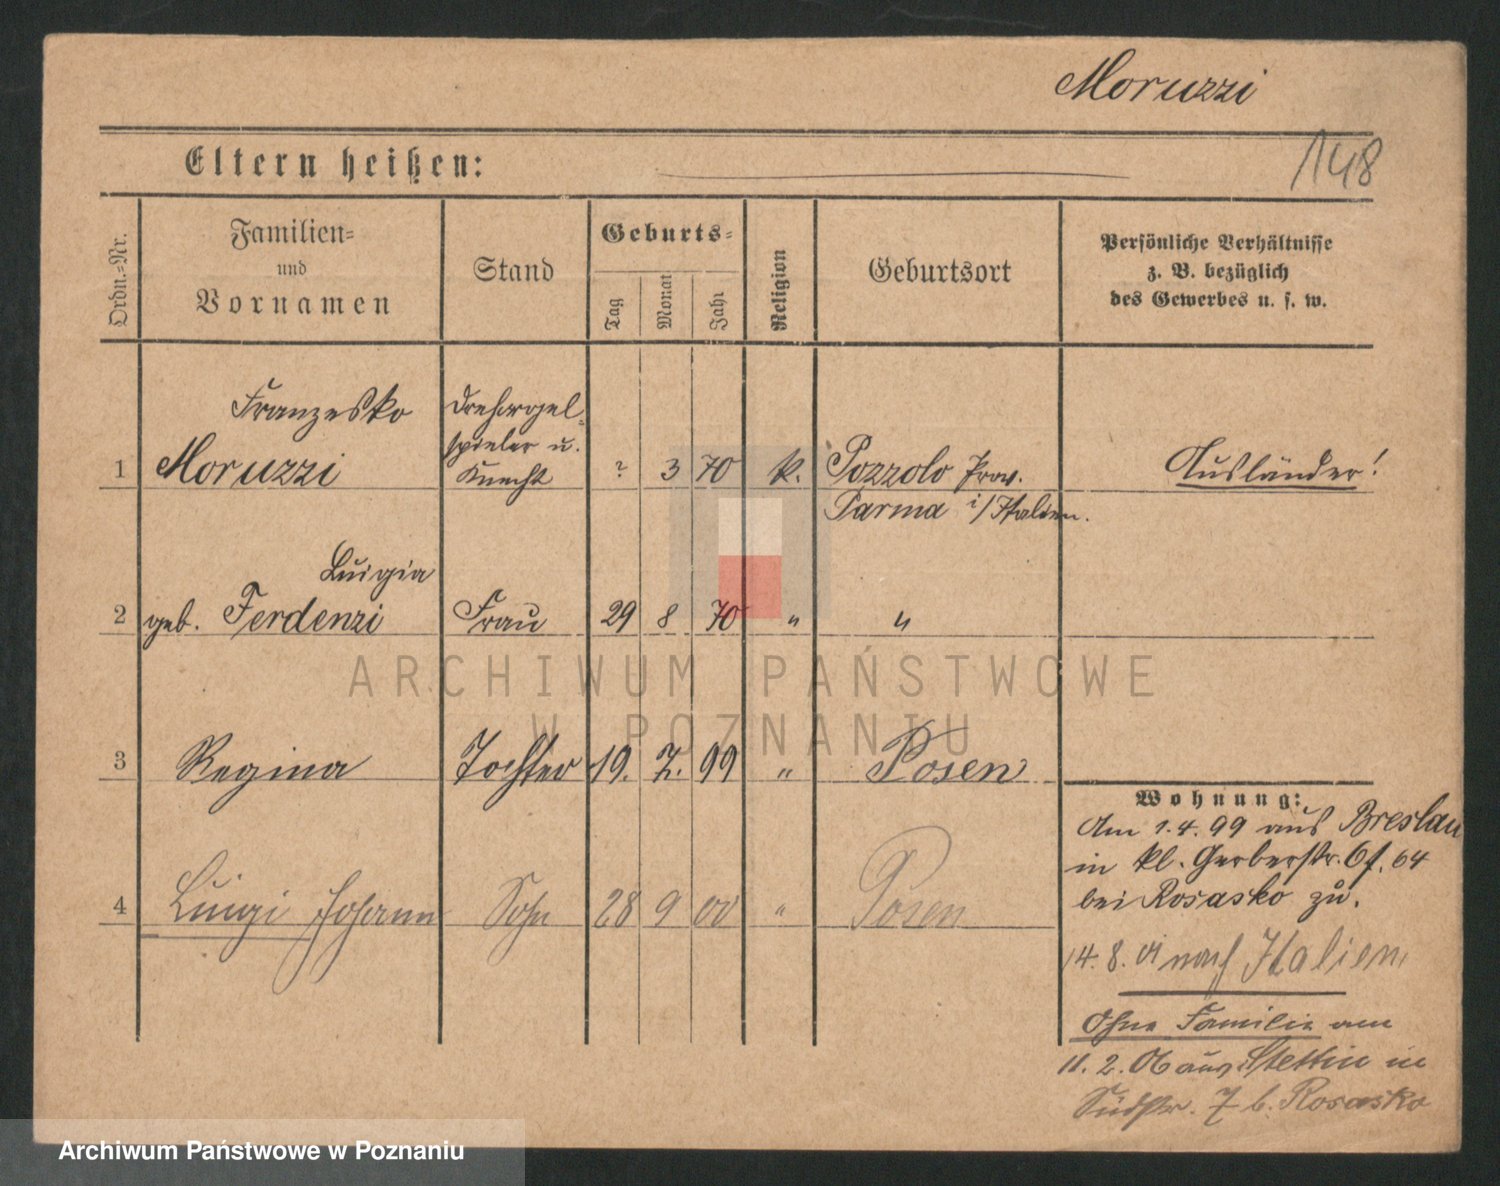 Moruzzi
148
Eltern heißen:
Ordn.=Nr.
Familien=
und
Vornamen
Stand
Geburts=
Tag
Monat
Jahr
Religion
Geburtsort
Persönliche Verhältnisse
z. B. bezüglich
des Gewerbes u. s. w.
Franzesko
Moruzzi
Drehorgel=
spieler u.
Knecht
1
? 3 70 k. Pozzolo Prov.
Parma i/Italien.
Ausländer!
Luigia
2 geb. Ferdenzi Frau 29 8 70 " "
3 Regina Tochter 19. 7. 99 " Posen
4 Luigi Johann Sohn 28 9 00 " Posen
Wohnung:
Am 1.4.99 aus Breslau
in kl. Gerberstr. 64
bei Rosasko zu.
14. 8. 01 nach Italien
Ohne Familie am
11. 2. 06 aus Stettin in
Südstr. 7 b. Rosasko
ARCHIWUM PAŃSTWOWE
W POZNANIU
Archiwum Państwowe w Poznaniu